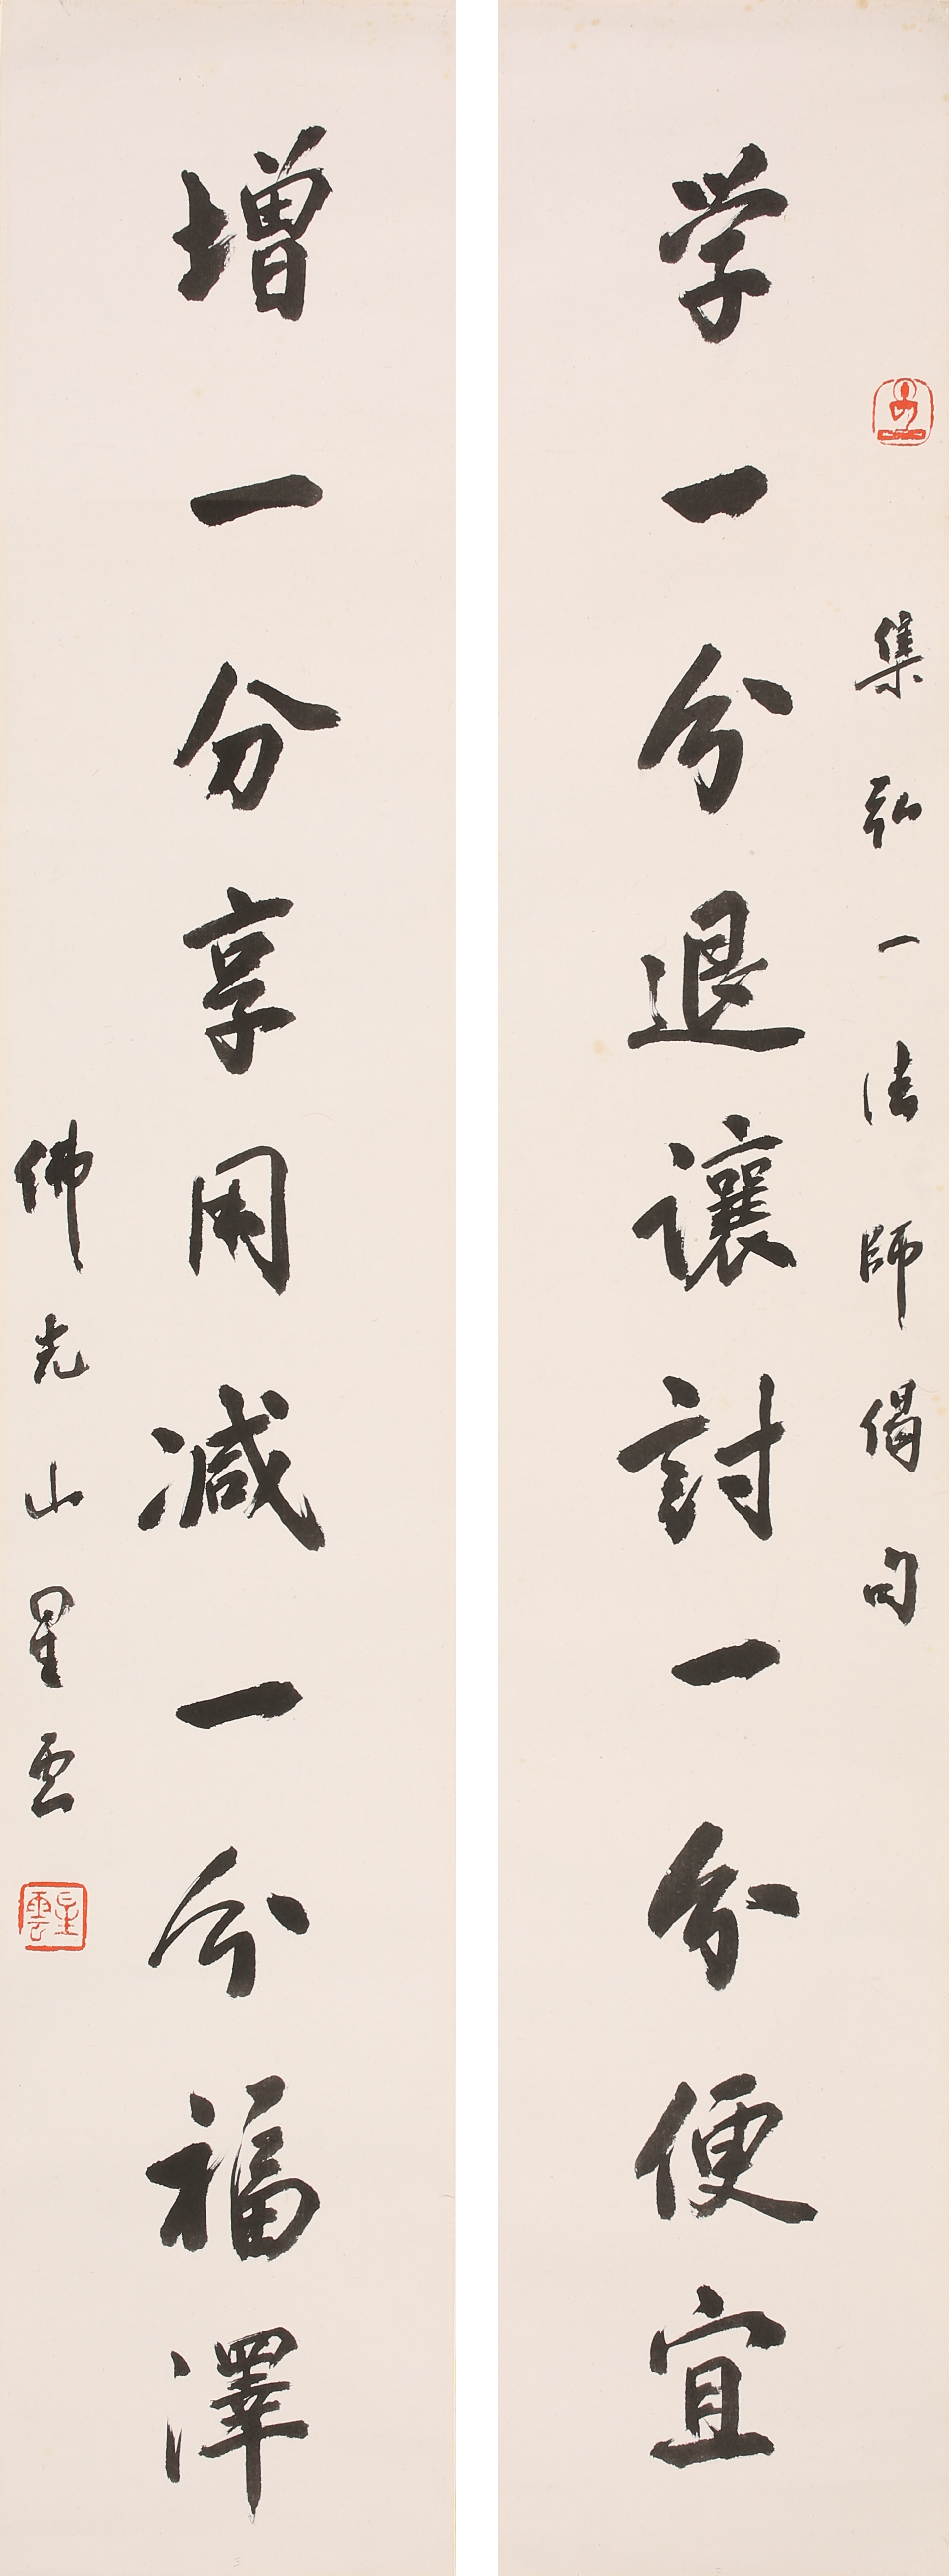 集弘一法師偈句
学一分退讓討一分便宜
增一分享用减一分福澤
佛光山星云
星雲